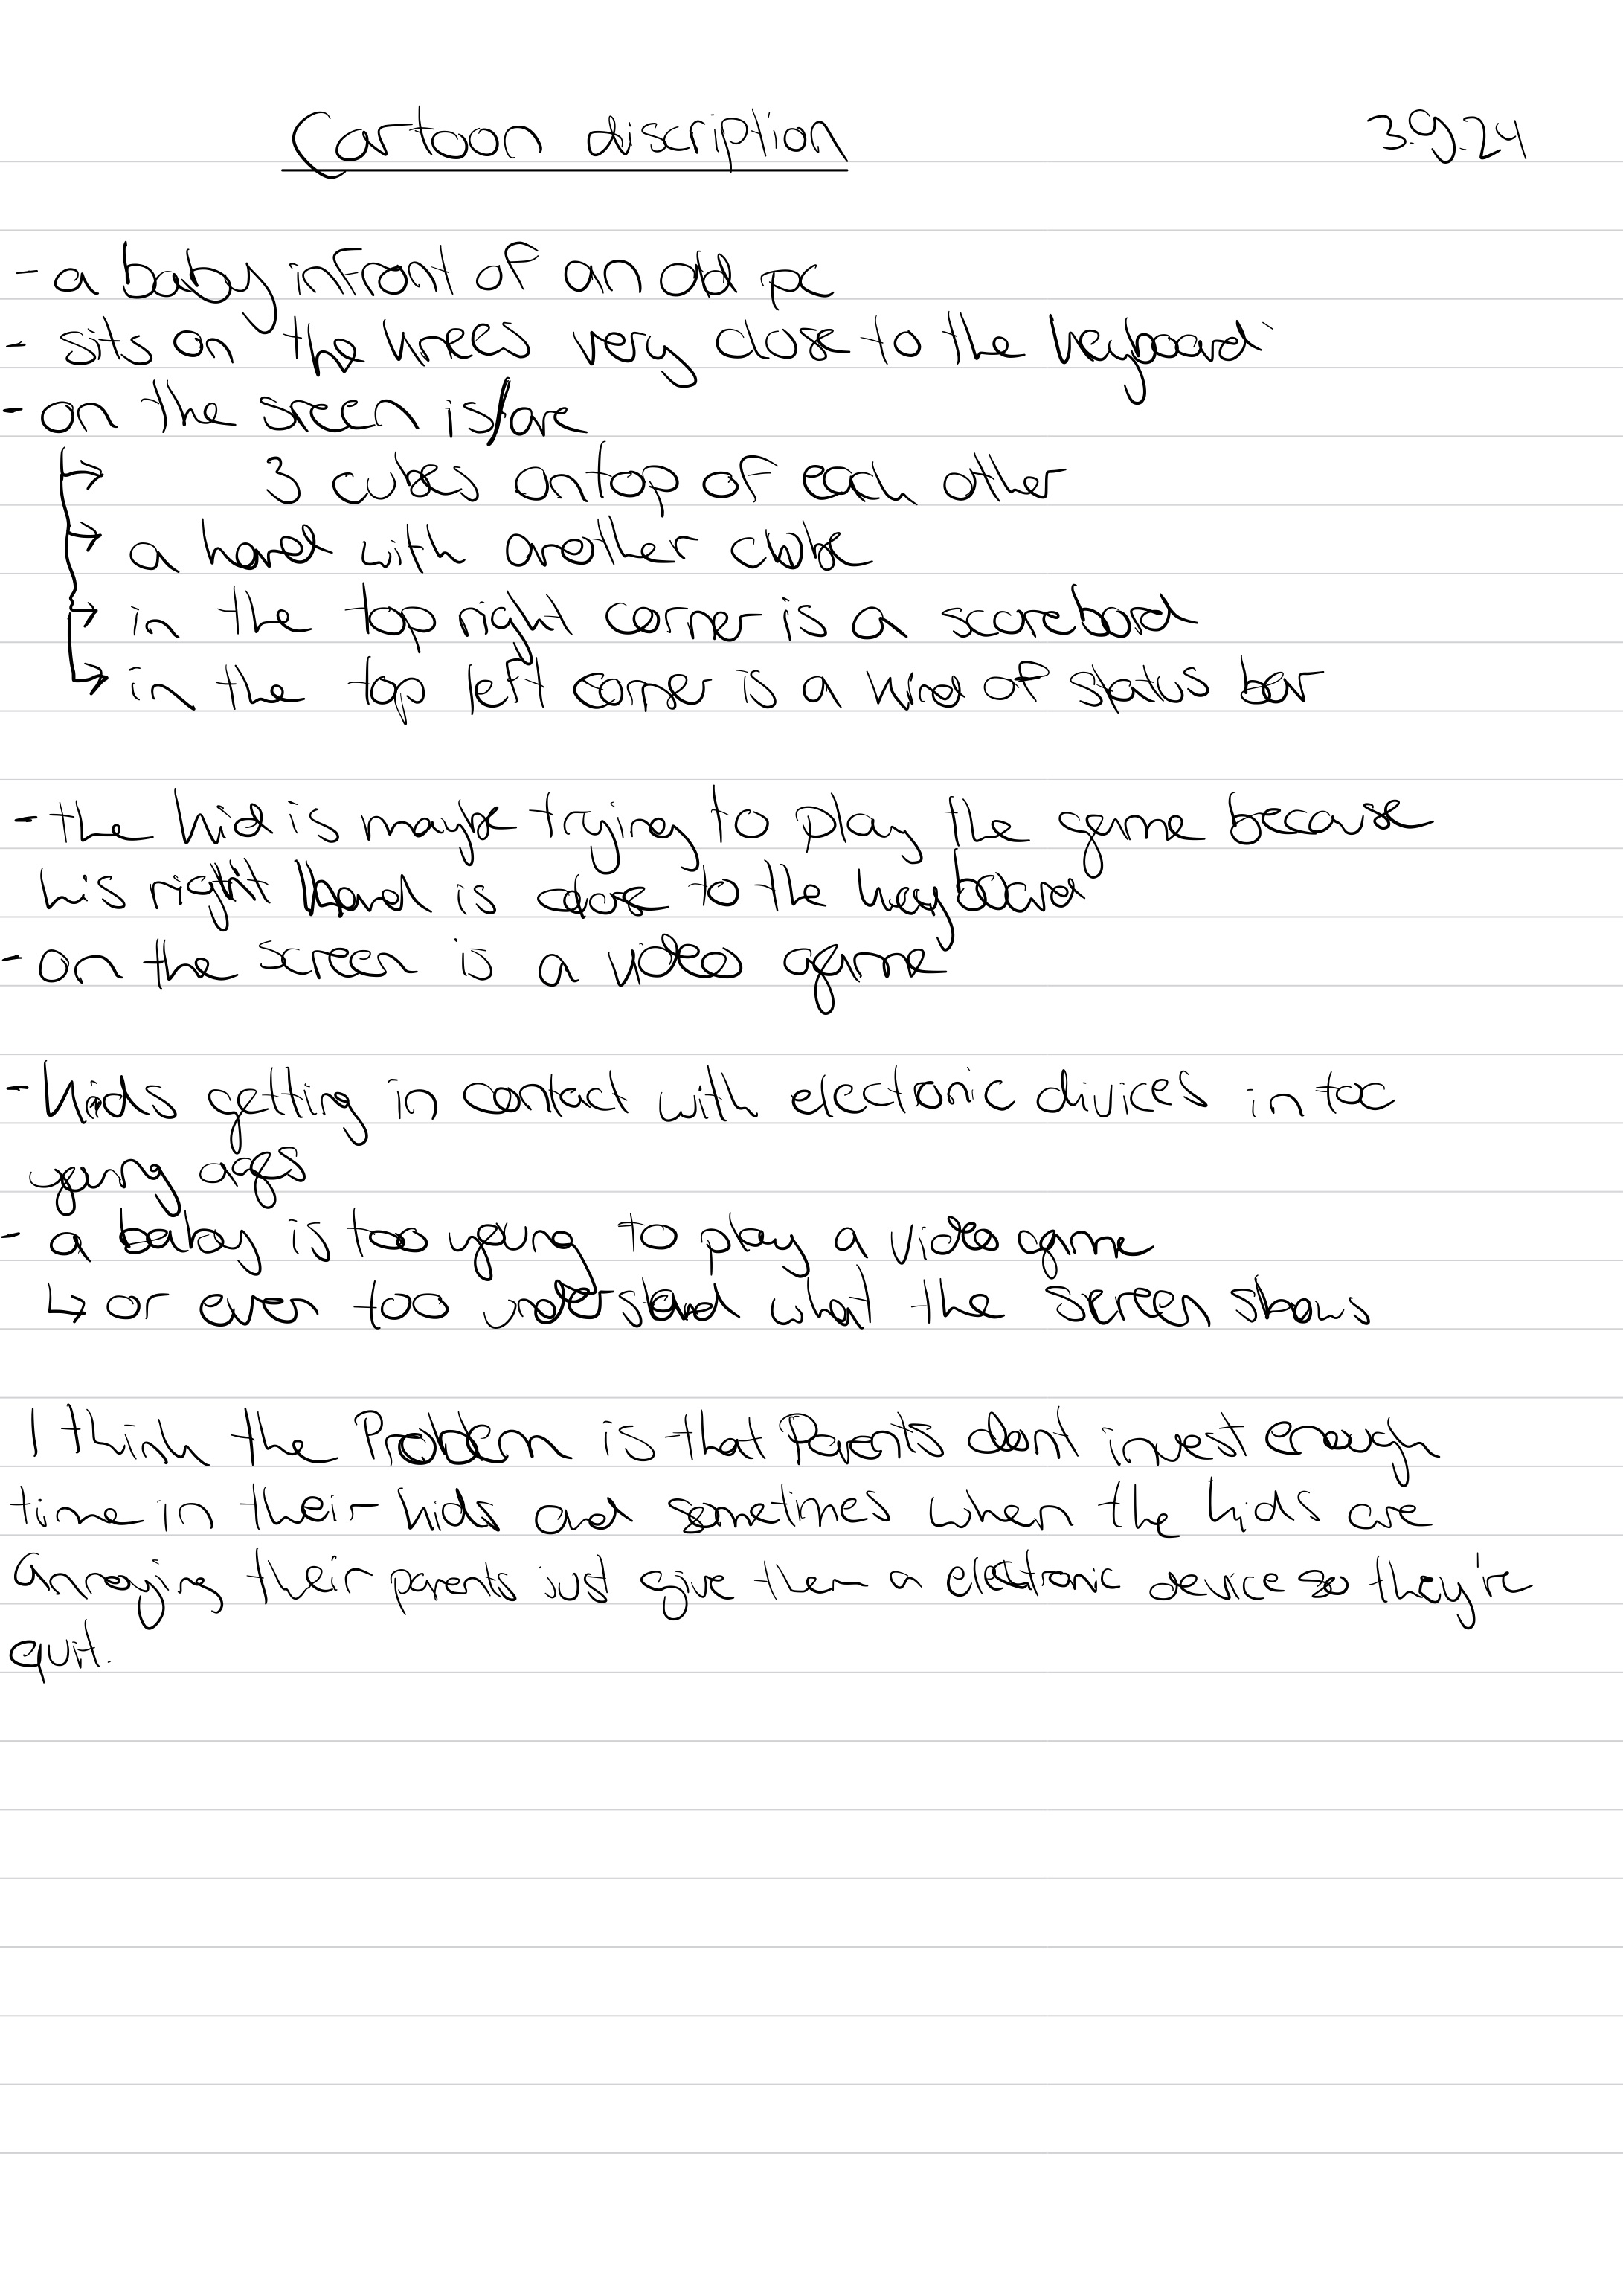 Cartoon discription 3.9.24
- a baby infront of an old pc
- sits on the knees very close to the keyboard
- on the sreen is/are
→ 3 cubes ontop of each other
→ a hand with another cube
→ in the top right corner is a scorebord
→ in the top left corner is a kind of status bar
- the kid is maybe trying to play the game because
his right hand is close to the keyboard
- on the screen is a video game
- Kids getting in contact with electonic divices in too
young ages
- a baby is too young to play a video game
↳ or even too understand what the screen shows
I think the Problem is that Parents dont invest enough
time in their kids and sometimes when the kids are
annoying their parents just give them a electronic device so they're
quit.